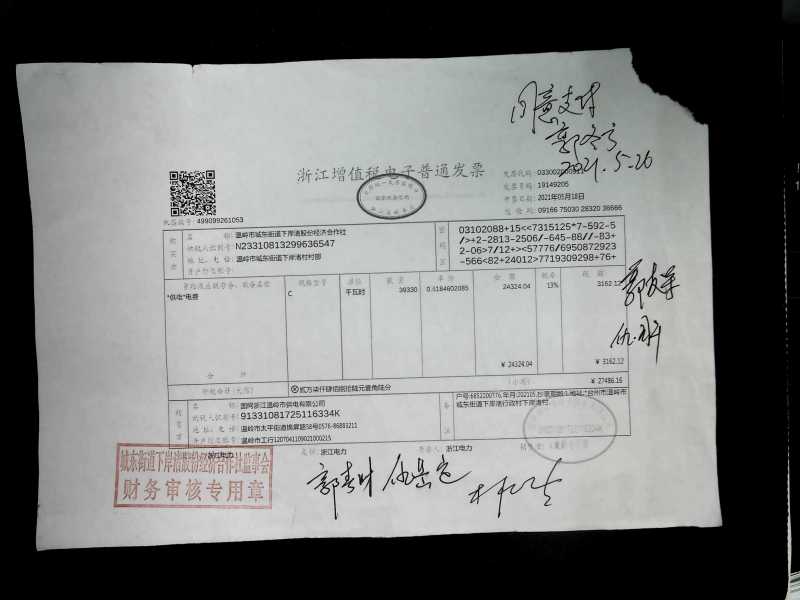 同意支付
2021.5-26
浙江增值税电子普通发票
发票代码:
发票号码: 19149205
开票日期: 2021年05月18日
校验码: 09166 75030 28320 36666
机器编号: 499099261053
购买方
名称: 温岭市城东街道下岸渚股份经济合作社
纳税人识别号: N23310813299636547
地址、电话: 温岭市城东街道下岸渚村村部
开户行及账号:
密码区
03102088+15<<7315125*7-592-5
/>+2-2813-2506/-645-86//-83+
2-06>7/12+><57776/6950872923
-566<82+24012>7719309298+76+
货物或应税劳务、服务名称 规格型号 单位 数量 单价 金额 税率 税额
*供电*电费 C 千瓦时 39330 0.6184602085 24324.04 13% 3162.12
合计 ¥24324.04 ¥3162.12
价税合计(大写) ⊗贰万柒仟肆佰捌拾陆元壹角陆分 (小写) ¥27486.16
销售方
名称: 国网浙江温岭市供电有限公司
纳税人识别号: 91331081725116334K
地址、电话: 温岭市太平街道横屏路58号0576-86883211
开户行及账号: 温岭市工行1207041109021000215
备注
城东街道下岸渚行政村下岸渚村
浙江电力 复核: 浙江电力 开票人: 浙江电力 销售方:
城东街道下岸渚股份经济合作社监事会
财务审核专用章